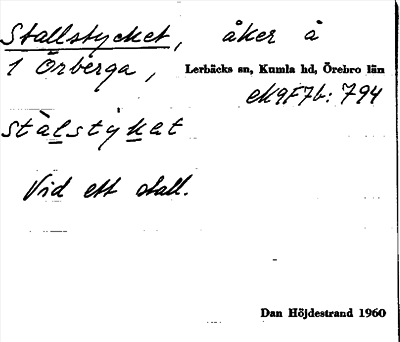 Stallstycket, åker å
1 Örberga, Lerbäcks sn, Kumla hd, Örebro län
ek 9F7b: 794
stàlstýkat
Vid ett stall.
Dan Höjdestrand 1960